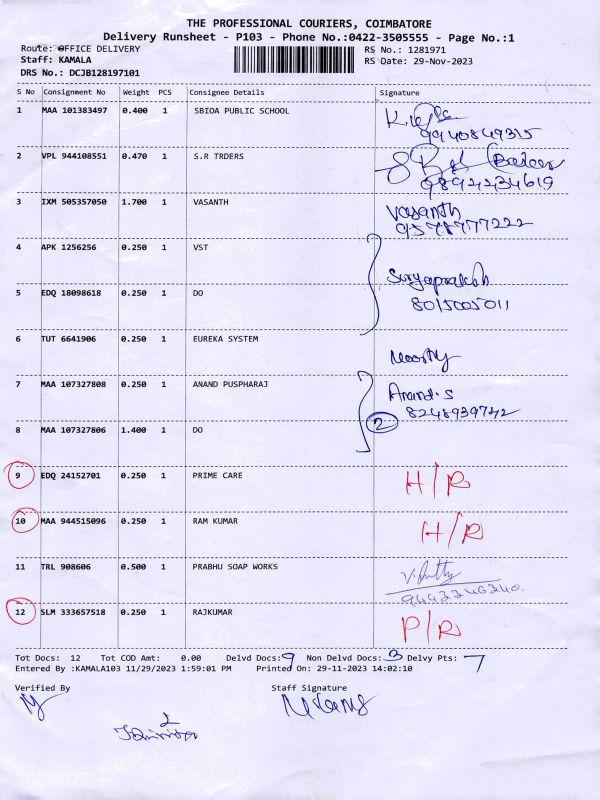 THE PROFESSIONAL COURIERS, COIMBATORE
Delivery Runsheet - P103 - Phone No.:0422-3505555 - Page No.:1
Route: OFFICE DELIVERY RS No.: 1281971
Staff: KAMALA RS Date: 29-Nov-2023
DRS No.: DCJB128197101
S No Consignment No Weight PCS Consignee Details Signature
1 MAA 101383497 0.400 1 SBIOA PUBLIC SCHOOL
9940849315
2 VPL 944108551 0.470 1 S.R TRDERS
9894234619
3 IXM 505357050 1.700 1 VASANTH Vasanth
9578777222
4 APK 1256256 0.250 1 VST
Suryaprakash
5 EDQ 18098618 0.250 1 DO 8015005011
6 TUT 6641906 0.250 1 EUREKA SYSTEM
Moorthy
7 MAA 107327808 0.250 1 ANAND PUSPHARAJ Anand.S
8248939742
2
8 MAA 107327806 1.400 1 DO
9 EDQ 24152701 0.250 1 PRIME CARE H/R
10 MAA 944515096 0.250 1 RAM KUMAR H/R
11 TRL 908606 0.500 1 PRABHU SOAP WORKS
12 SLM 333657518 0.250 1 RAJKUMAR P/R
Tot Docs: 12 Tot COD Amt: 0.00 Delvd Docs: 9 Non Delvd Docs: 3 Delvy Pts: 7
Entered By :KAMALA103 11/29/2023 1:59:01 PM Printed On: 29-11-2023 14:02:10
Verified By Staff Signature
2